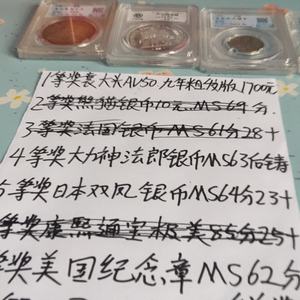 1等奖袁大头AU50九年粗发版1700元
2等奖熊猫银币10元MS69分
3等奖法国银币MS61分28+
4等奖大力神法郎银币MS63后铸
5等奖日本双凤银币MS64分23+
等奖康熙通宝极美85分25+
等奖美国纪念章MS62分